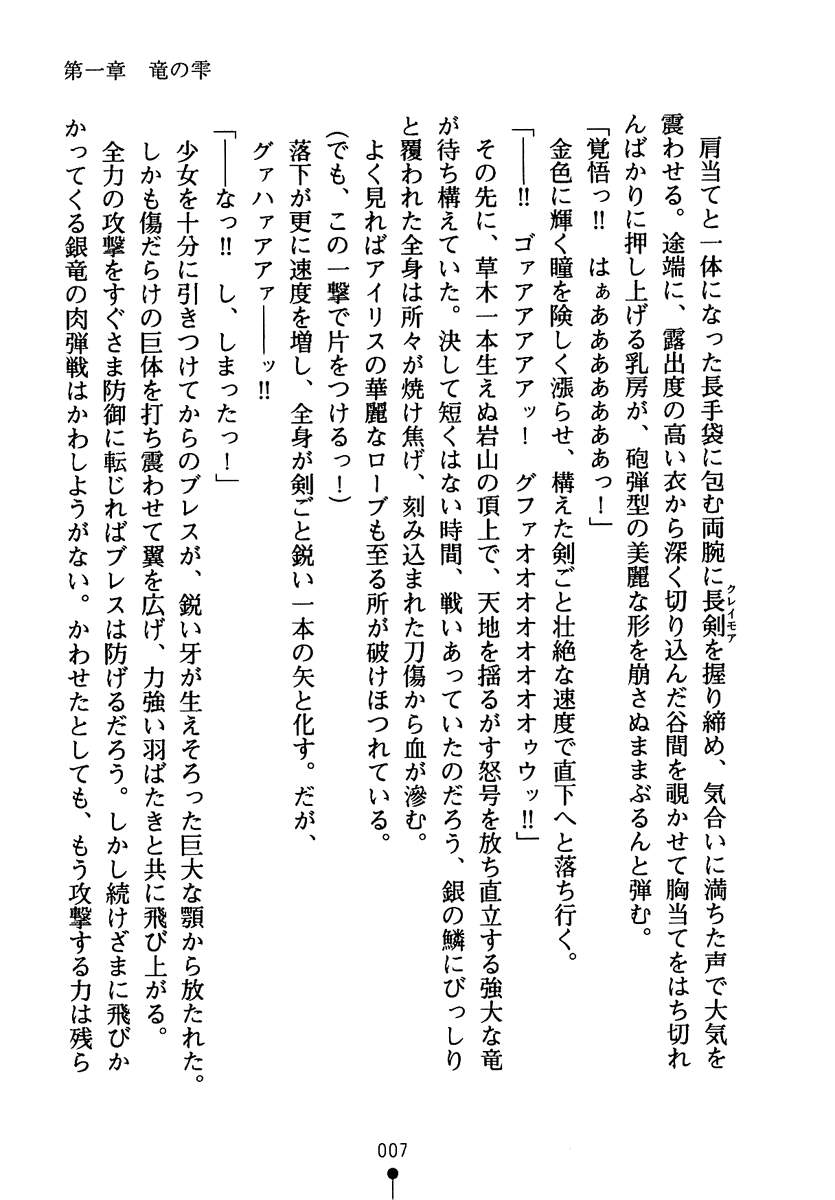 第一章　竜の雫
　肩当てと一体になった長手袋に包む両腕に長剣を握り締め、気合いに満ちた声で大気を
クレイモア
震わせる。途端に、露出度の高い衣から深く切り込んだ谷間を覗かせて胸当てをはち切れ
んばかりに押し上げる乳房が、砲弾型の美麗な形を崩さぬままぶるんと弾む。
「覚悟っ‼　はぁあああああああっ！」
　金色に輝く瞳を険しく漲らせ、構えた剣ごと壮絶な速度で直下へと落ち行く。
「――‼　ゴァアアアアアッ！　グファオオオオオオオオゥウッ‼」
　その先に、草木一本生えぬ岩山の頂上で、天地を揺るがす怒号を放ち直立する強大な竜
が待ち構えていた。決して短くはない時間、戦いあっていたのだろう、銀の鱗にびっしり
と覆われた全身は所々が焼け焦げ、刻み込まれた刀傷から血が滲む。
　よく見ればアイリスの華麗なローブも至る所が破けほつれている。
（でも、この一撃で片をつけるっ！）
　落下が更に速度を増し、全身が剣ごと鋭い一本の矢と化す。だが、
　グァハァアアァ――ッ‼
「――なっ‼　し、しまったっ！」
　少女を十分に引きつけてからのブレスが、鋭い牙が生えそろった巨大な顎から放たれた。
　しかも傷だらけの巨体を打ち震わせて翼を広げ、力強い羽ばたきと共に飛び上がる。
　全力の攻撃をすぐさま防御に転じればブレスは防げるだろう。しかし続けざまに飛びか
かってくる銀竜の肉弾戦はかわしようがない。かわせたとしても、もう攻撃する力は残ら
007